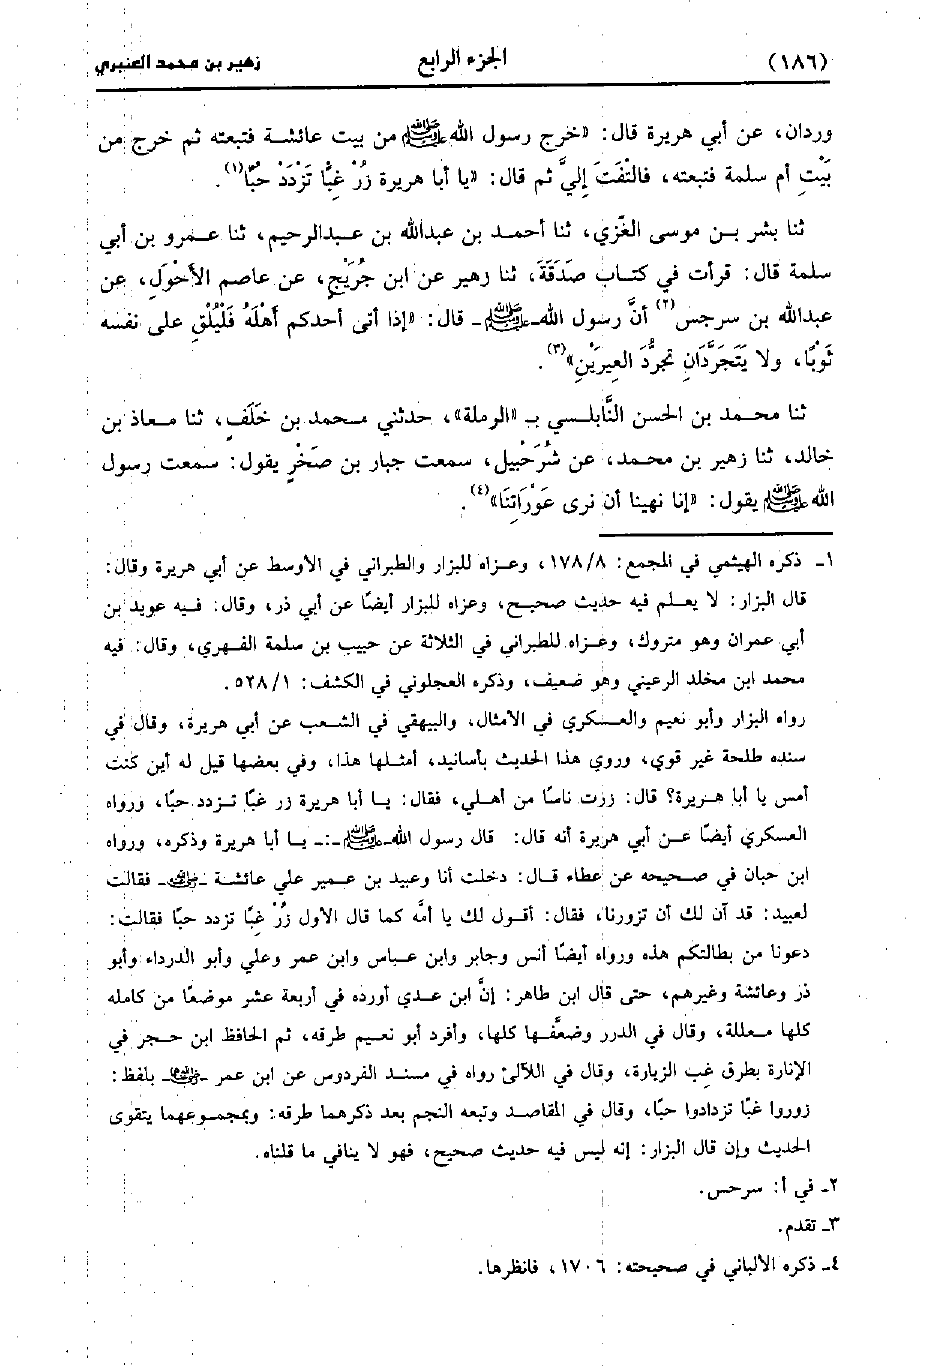 (١٨٦) الجزء الرابع زهير بن محمد العنبري
وردان، عن أبي هريرة قال: «خرج رسول الله ﷺ من بيت عائشة فتبعته ثم خرج من
بَيْتِ أم سلمة فتبعته، فالتْفَتَ إليَّ ثم قال: «يا أبا هريرة زُرْ غِبًّا تَزْدَدْ حُبًّا(١).
ثنا بشر بن موسى الغزّي، ثنا أحمد بن عبدالله بن عبدالرحيم، ثنا عمرو بن أبي
سلمة قال: قرأت في كتاب صَدَقَةَ، ثنا زهير عن ابن جُرَيْجٍ، عن عاصم الأحْوَلِ، عن
عبدالله بن سرجس(٢) أنَّ رسول الله ـ ﷺ ـ قال: «إذا أتى أحدكم أهْلَهُ فَلْيُلْقِ على نفسه
ثَوْبًا، ولا يَتَجَرَّدَانِ تجرُّدَ العِيرَيْنِ»(٣).
ثنا محمد بن الحسن النَّابلسي بـ «الرملة»، حدثني محمد بن خَلَفٍ، ثنا معاذ بن
خالد، ثنا زهير بن محمد، عن شُرَحْبيل، سمعت جبار بن صَخْرٍ يقول: سمعت رسول
الله ﷺ يقول: «إنا نهينا أن نرى عَوْرَاتِنَا»(٤).
١ـ ذكره الهيثمي في المجمع: ١٧٨/٨، وعزاه للبزار والطبراني في الأوسط عن أبي هريرة وقال:
قال البزار: لا يعلم فيه حديث صحيح، وعزاه للبزار أيضًا عن أبي ذر، وقال: فيه عويد بن
أبي عمران وهو متروك، وعزاه للطبراني في الثلاثة عن حبيب بن سلمة الفهري، وقال: فيه
محمد ابن مخلد الرعيني وهو ضعيف، وذكره العجلوني في الكشف: ٥٢٨/١.
رواه البزار وأبو نعيم والعسكري في الأمثال، والبيهقي في الشعب عن أبي هريرة، وقال في
سنده طلحة غير قوي، وروي هذا الحديث بأسانيد، أمثلها هذا، وفي بعضها قيل له أين كنت
أمس يا أبا هريرة؟ قال: زرت ناسًا من أهلي، فقال: يا أبا هريرة زر غبًا تزدد حبًا، ورواه
العسكري أيضًا عن أبي هريرة أنه قال: قال رسول الله ـ ﷺ ـ: يا أبا هريرة وذكره، ورواه
ابن حبان في صحيحه عن عطاء قال: دخلت أنا وعبيد بن عمير علي عائشة ـ رضي الله عنها ـ فقالت
لعبيد: قد آن لك أن تزورنا، فقال: أقول لك يا أمَّه كما قال الأول زُرْ غبًا تزدد حبًا فقالت:
دعونا من بطالتكم هذه ورواه أيضًا أنس وجابر وابن عباس وابن عمر وعلي وأبو الدرداء وأبو
ذر وعائشة وغيرهم، حتى قال ابن طاهر: إنَّ ابن عدي أورده في أربعة عشر موضعًا من كامله
كلها معللة، وقال في الدرر وضعَّفها كلها، وأفرد أبو نعيم طرقه، ثم الحافظ ابن حجر في
الإنارة بطرق غب الزيارة، وقال في اللآلئ رواه في مسند الفردوس عن ابن عمر ـ رضي الله عنهما ـ بلفظ:
زوروا غبًا تزدادوا حبًا، وقال في المقاصد وتبعه النجم بعد ذكرهما طرقه: وبمجموعهما يتقوى
الحديث وإن قال البزار: إنه ليس فيه حديث صحيح، فهو لا ينافي ما قلناه.
٢ـ في أ: سرحس.
٣ـ تقدم.
٤ـ ذكره الألباني في صحيحته: ١٧٠٦، فانظرها.